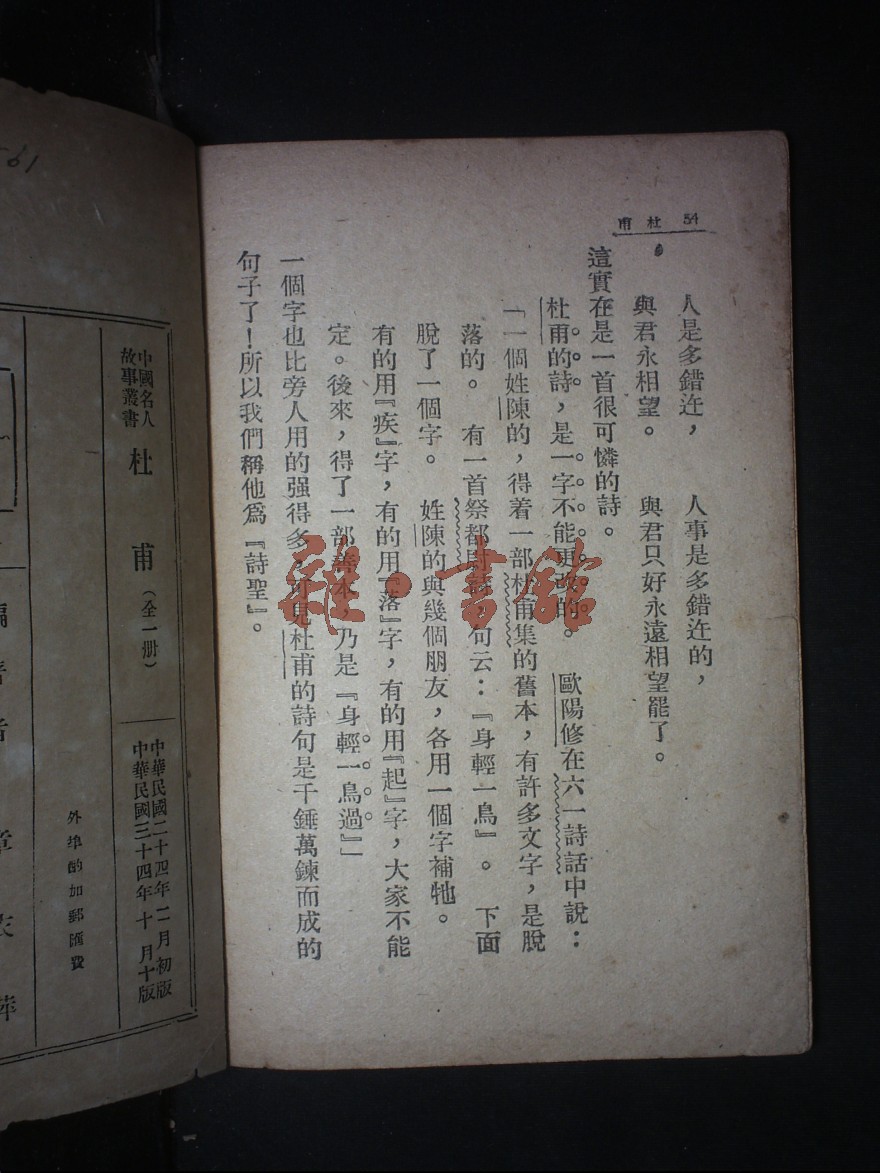 54 杜甫
人是多錯迕，　人事是多錯迕的，
與君永相望。　與君只好永遠相望罷了。
這實在是一首很可憐的詩。
杜甫的詩，是一字不能更改的。　歐陽修在六一詩話中說：
「一個姓陳的，得着一部杜甫集的舊本，有許多文字，是脫
落的。　有一首祭都尉詩，句云：『身輕一鳥』。　下面
脫了一個字。　姓陳的與幾個朋友，各用一個字補牠。
有的用『疾』字，有的用『落』字，有的用『起』字，大家不能
定。後來，得了一部善本，乃是『身輕一鳥過』」
一個字也比旁人用的强得多。可見杜甫的詩句是千錘萬鍊而成的
句子了！所以我們稱他爲『詩聖』。
雜·書館
中華民國二十四年二月初版
中華民國三十四年十月十版
中國名人
故事叢書
杜甫（全一册）
外埠酌加郵滙費
編著者 章衣萍
561